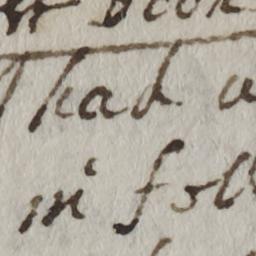 book
I had a
in fol